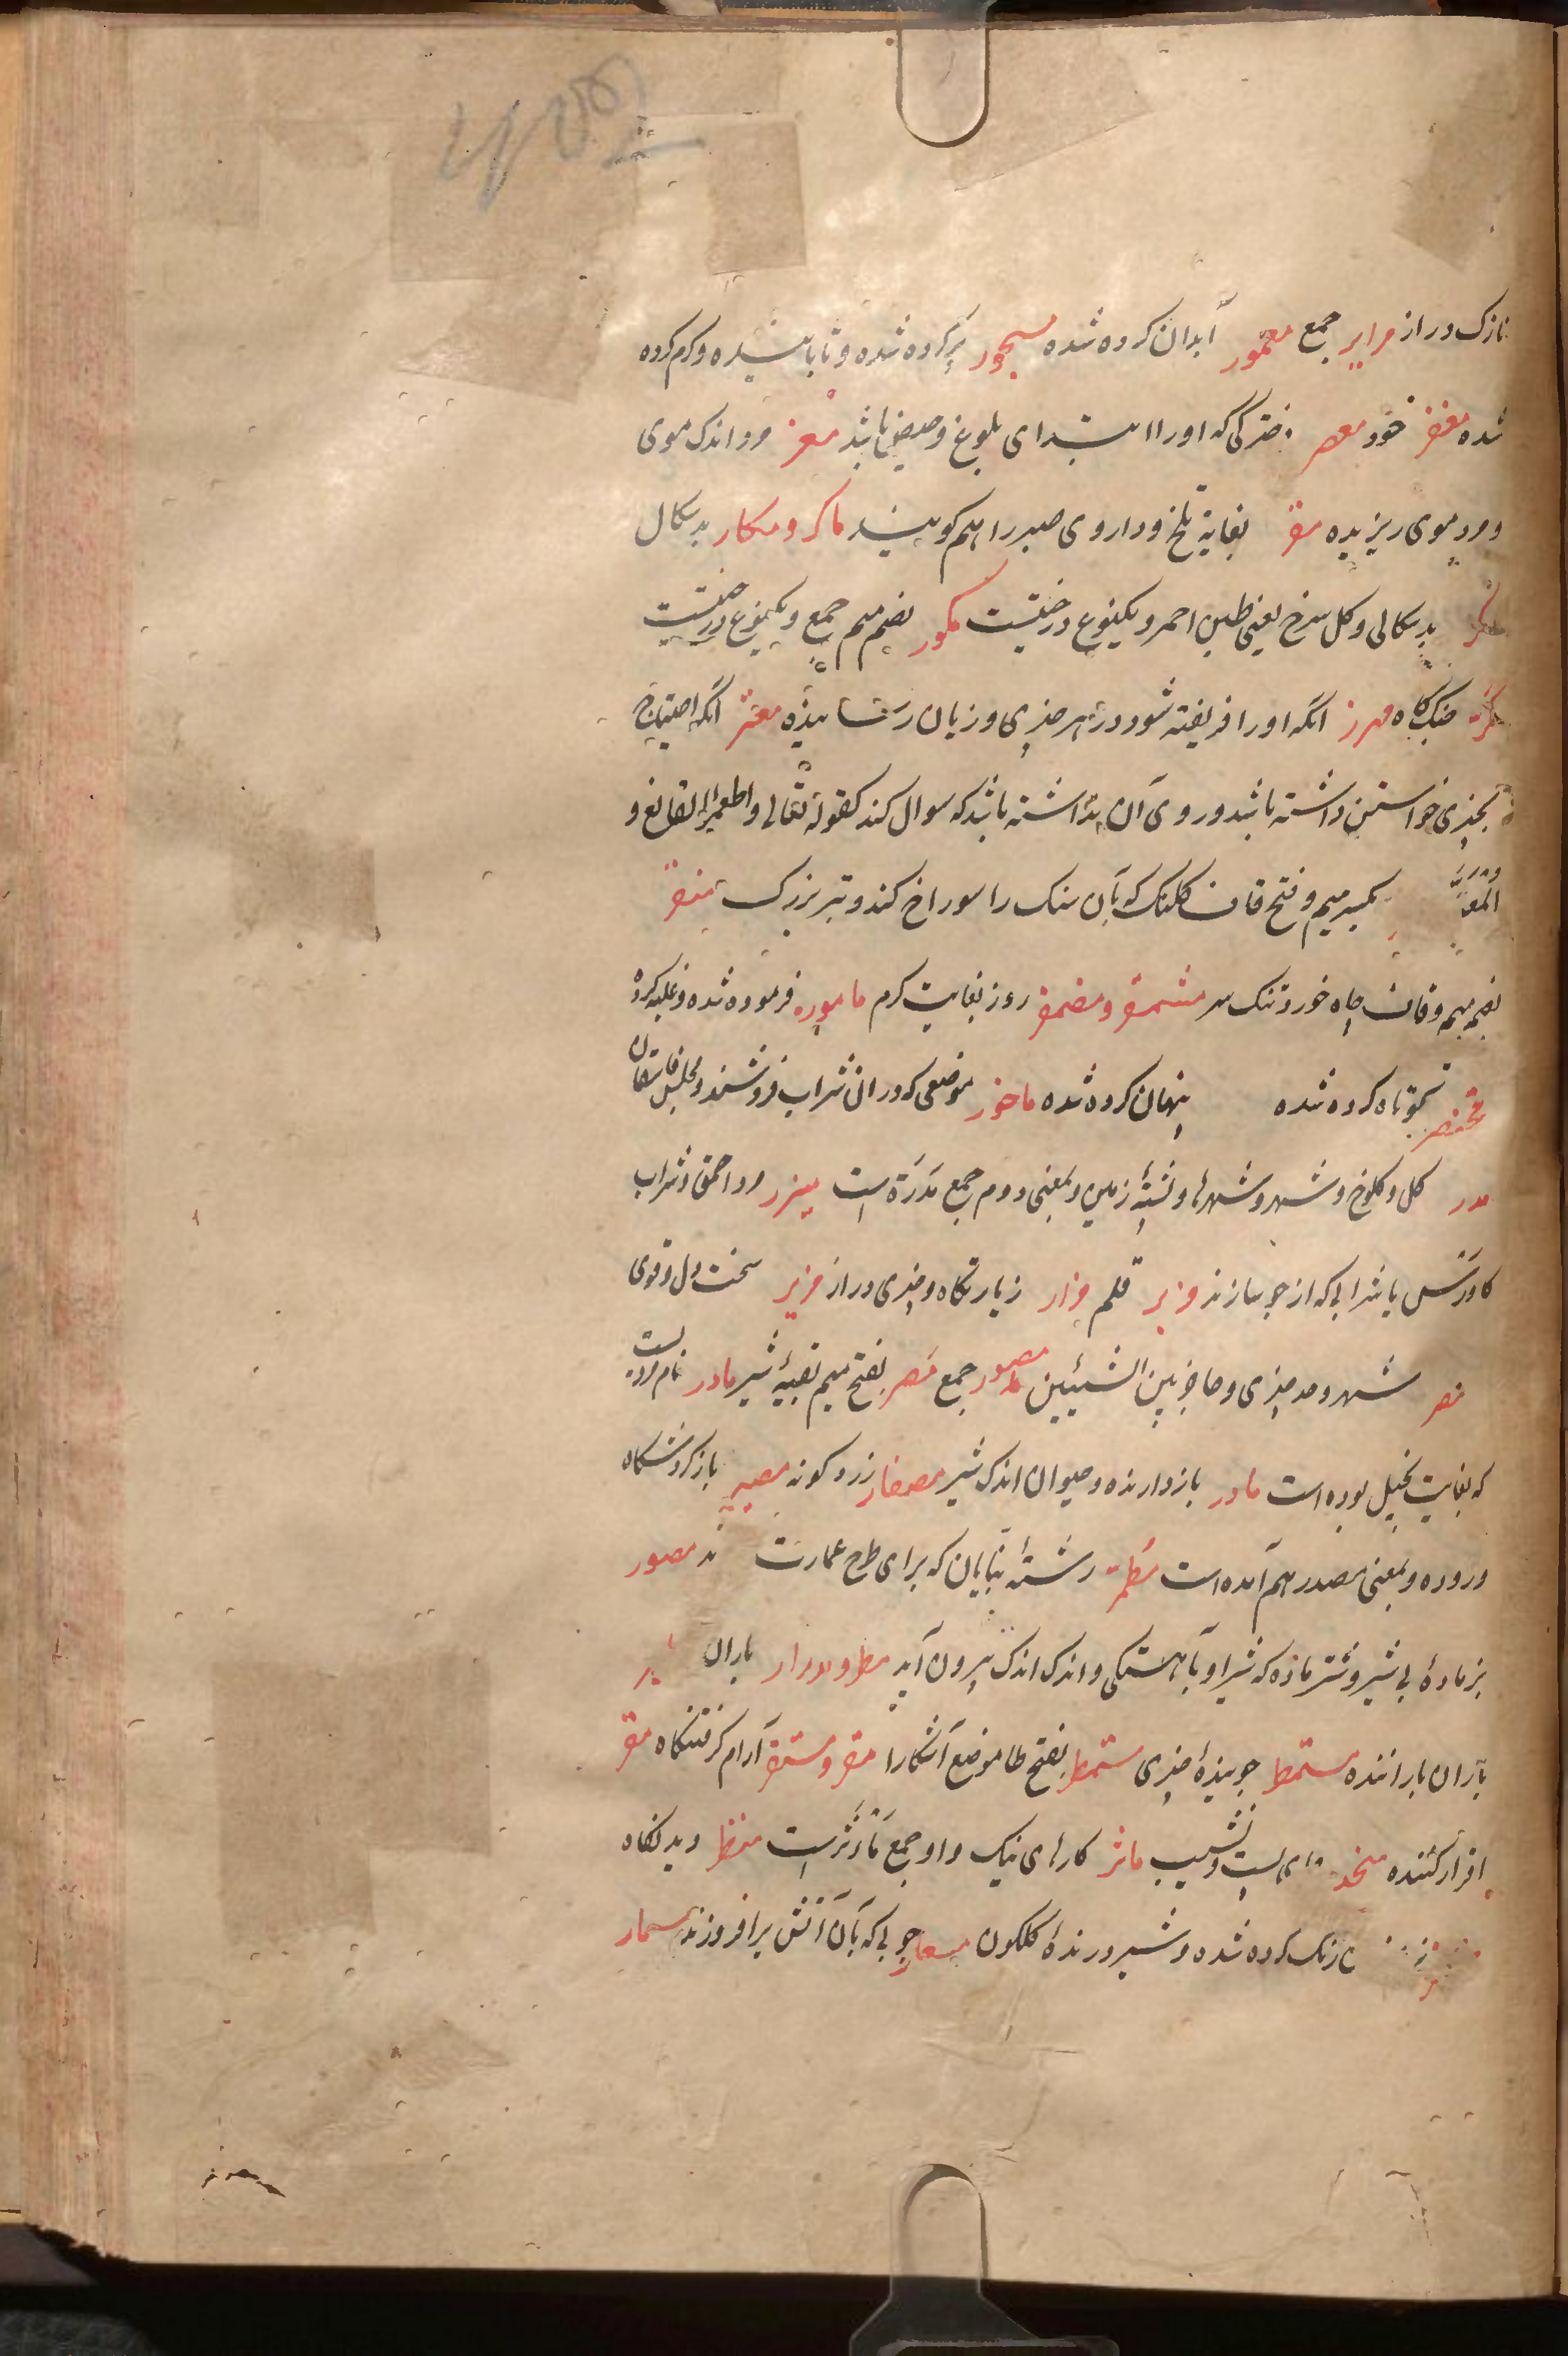 نازک دراز مرایر جمع معمور آبدان کرده شده مسجور پر کرده شده و تابانیده و کرم کرده
شده مغفر خود معصر دخترکی که او را ابتدای بلوغ و حیض باشد معز مرد اندک موی
و مرد موی ریزیده مقر بغایة تلخ و داروی صبر را هم کویند ماکر و مکار بدسکال
مکر بدسکالی و کل سرخ یعنی طین احمر و یکنوع درختیست مکور بضم میم جمع و یکنوع درختیست
آنکه او را فریفته شود در هر چیزی و زیان رساننده معتر آنکه احتیاج
بچیزی خواستن داشته باشد و روی آن نداشته باشد که سوال کند کقوله تعالی و اطعموا القانع و
المعتر بکسر میم و فتح قاف کلنک که بآن سنک را سوراخ کند و تبر بزرک منقر
بضم میم و قاف چاه خورد تنک سر مشمقر و مضمقر روز بغایت کرم مامور فرموده شده و غلبه کرده
مختصر کوتاه کرده شده پنهان کرده شده ماخور موضعی که در آن شراب فروشند و مجلس فاسقان
مدر کل و کلوخ و شهر و شهرها و پشتهٔ زمین و بمعنی دوم جمع مدرة است میزر مرد احمق و شراب
کاورس یا شرابی که از جو سازند مزبر قلم مزار زیارتکاه و چیزی دراز مزیر سخت دل و قوی
مصر شهر و حد چیزی و حاجز بین الشیئین مصور جمع مصر بفتح میم بقیهٔ شیر مادر نام مردیست
که بغایت بخیل بوده است مادر بازدارنده و حیوان اندک شیر مصفار زرد کونه مصیر بازکردشکاه
و روده و بمعنی مصدر هم آمده است مطمر رشتهٔ بنایان که برای طرح عمارت ند مصور
بز مادهٔ بی شیر و شتر ماده که شیر او بآهستکی و اندک اندک بیرون آید مطر و مدرار باران
باران باراننده مستمطر جویندهٔ چیزی مستمطر بفتح طا موضع آشکارا مقر و مستقر آرام کرفتنکاه مقر
اقرار کننده منحدر جای پست و نشیب ماثر کارهای نیک و او جمع ماثر است منظر دیدنکاه
رنک کرده شده و شیر درندهٔ کلکون مسعار چوبی که بآن آتش برافروزند مسمار